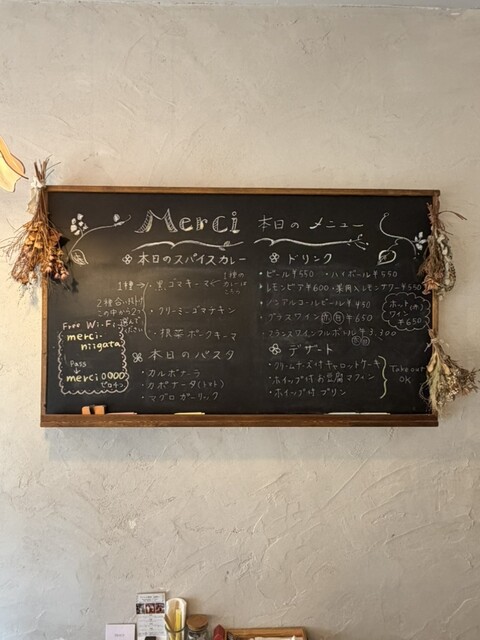 Merci 本日の メニュー
本日のスパイスカレー
1種 黒ゴマキーマ
1種の
カレーは
こちら
2種合いがけ
この中から2つ
選んで
ください
・クリーミーゴマチキン
・根菜ポークキーマ
Free Wi-Fi
merci-
niigata
Pass
merci0000
ゼロ4つ
本日のパスタ
・カルボナーラ
・カポナータ(トマト)
・マグロガーリック
ドリンク
・ビール¥550 ・ハイボール¥550
・レモンビア¥600 ・薬用入レモンサワー¥550
・ノンアルコールビール¥450
・グラスワイン 赤 白 ¥650
ホット(赤)
ワイン
¥650
・フランスワインフルボトル ¥3,300
デザート
・クリームチーズ付キャロットケーキ
・ホイップ付お豆腐マフィン
・ホイップ付プリン
Take out
OK